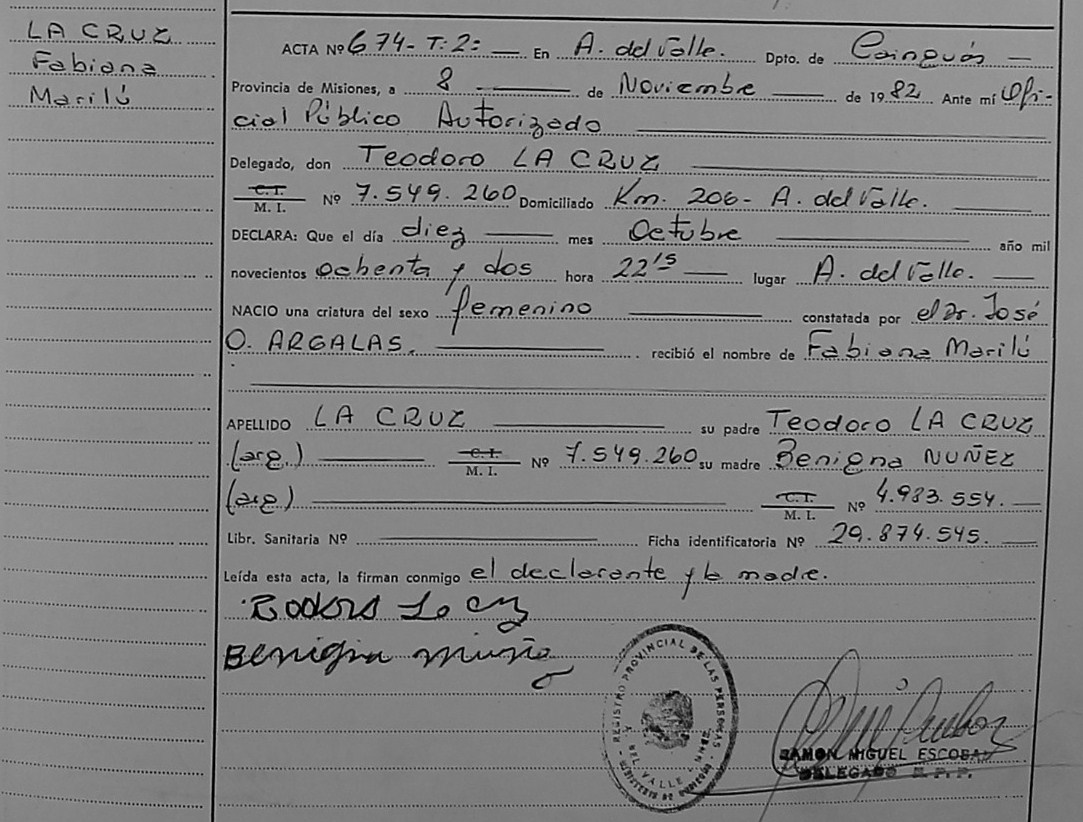 LA CRUZ
Fabiana
Marilú
ACTA Nº 674- T: 2: En A. del Valle. Dpto. de Cainguás
Provincia de Misiones, a 8 de Noviembre de 1982 Ante mí Ofi-
cial Público Autorizado
Delegado, don Teodoro LA CRUZ
C.I.
M. I. Nº 7.549.260 Domiciliado Km. 206- A. del Valle.
DECLARA: Que el día diez mes Octubre año mil
novecientos ochenta y dos hora 22'15 lugar A. del Valle.
NACIO una criatura del sexo femenino constatada por el Dr. José
O. ARGALAS. recibió el nombre de Fabiana Marilú
APELLIDO LA CRUZ su padre Teodoro LA CRUZ
(arg.) C.I. M. I. Nº 7.549.260 su madre Benigna NUÑEZ
(arg) C.I. M. I. Nº 4.983.554.
Libr. Sanitaria Nº Ficha identificatoria Nº 29.874.545.
Leída esta acta, la firman conmigo el declarante y la madre.
Benigna
REGISTRO PROVINCIAL DE LAS PERSONAS
DEL VALLE
RAMON MIGUEL ESCOBAR
DELEGADO R. P. P.